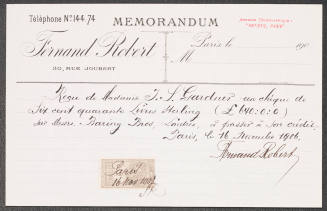 Téléphone No 144.74
MEMORANDUM
Adresse Télégraphique:
Fernand Robert
30, RUE JOUBERT
Paris le 190
M
Reçu de Madame J. L Gardner un chèque de
Six cent quarante Livres Sterling (£ 640:0:0)
sur Messrs Baring Bros, Londres, à passer à son crédit.
Paris, 16 Novembre 1906,
Fernand Robert
Paris
16 Nov